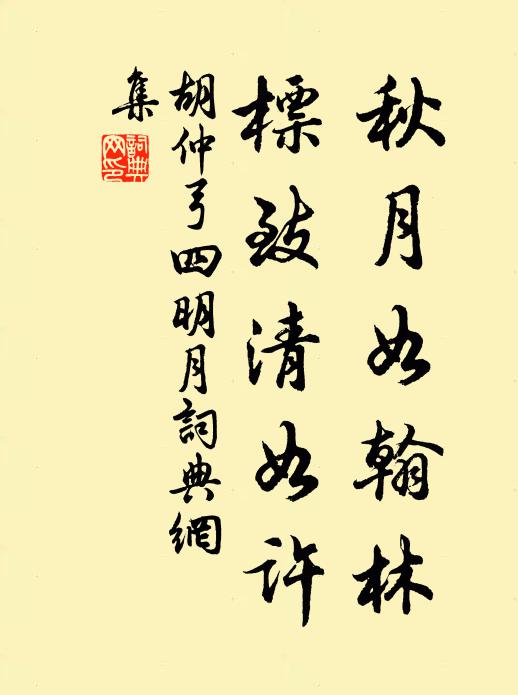 秋月如翰林
標致清如許
胡仲弓四明月詞典網
集
詞典網印